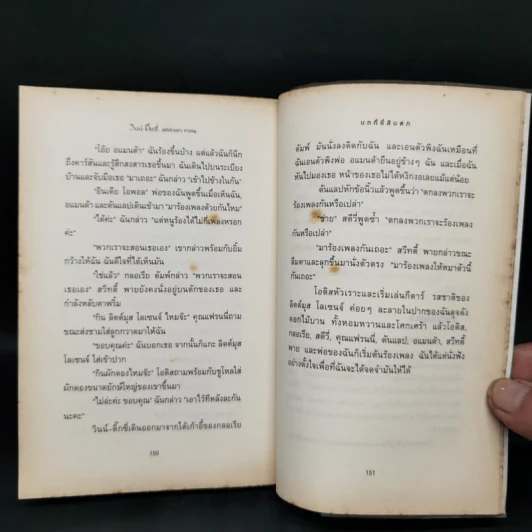 "โอ๊ย อแมนด้า" ฉันร้องขึ้นบ้าง แต่แล้วฉันก็นึก
ถึงคาร์สันและรู้สึกสงสารเธอขึ้นมา ฉันเดินไปบนระเบียง
บ้านและจับมือเธอ "มาเถอะ" ฉันกล่าว "เข้าไปข้างในกัน"
"อินเดีย โอพอล" พ่อของฉันพูดขึ้นเมื่อเห็นฉัน,
อแมนด้า และดันแลปเดินเข้ามา "มาร้องเพลงด้วยกันไหม"
"ได้ค่ะ" ฉันกล่าว "แต่หนูร้องได้ไม่กี่เพลงหรอก
ค่ะ"
"พวกเราจะสอนเธอเอง" เขากล่าวพร้อมกับยิ้ม
กว้างให้ฉัน ฉันดีใจที่ได้เห็นมัน
"ใช่แล้ว" กลอเรีย ดัมพ์กล่าว "พวกเราจะสอน
เธอเอง" สวีทตี้ พายยังคงนั่งอยู่บนตักของเธอ และ
กำลังหลับตาพริ้ม
"กิน ลิตต์มุส โลเซนจ์ ไหมจ๊ะ" คุณแฟรนนี่ถาม
ขณะส่งชามใส่ลูกกวาดมาให้ฉัน
"ขอบคุณค่ะ" ฉันบอกเธอ จากนั้นก็แกะ ลิตต์มุส
โลเซนจ์ ใส่เข้าปาก
"กินผักดองไหมจ๊ะ" โอติสถามพร้อมกับชูโหลใส่
ผักดองขนาดยักษ์ใหญ่ของเขาขึ้นมา
"ไม่ล่ะค่ะ ขอบคุณ" ฉันกล่าว "เอาไว้ทีหลังละกัน
นะคะ"
วินน์-ดิ๊กซี่เดินออกมาจากใต้เก้าอี้ของกลอเรีย
150
บทที่ยี่สิบหก
ดัมพ์ มันนั่งลงติดกับฉัน และเอนตัวพิงฉันเหมือนที่
ฉันเอนตัวพิงพ่อ อแมนด้ายืนอยู่ข้างๆ ฉัน และเมื่อฉัน
หันไปมองเธอ หน้าของเธอไม่ได้หงิกงอเลยแม้แต่น้อย
ดันแลปหักข้อนิ้วแล้วพูดขึ้นว่า "ตกลงพวกเราจะ
ร้องเพลงกันหรือเปล่า"
"ช่าย" สตีวี่พูดซ้ำ "ตกลงพวกเราจะร้องเพลง
กันหรือเปล่า"
"มาร้องเพลงกันเถอะ" สวีทตี้ พายกล่าวขณะ
ลืมตาและลุกขึ้นมานั่งตัวตรง "มาร้องเพลงให้หมาตัวนี้
กันเถอะ"
โอติสหัวเราะและเริ่มเล่นกีตาร์ รสชาติของ
ลิตต์มุส โลเซนจ์ ค่อยๆ ละลายในปากของฉันดุจดัง
ดอกไม้บาน ทั้งหอมหวานและโศกเศร้า แล้วโอติส,
กลอเรีย, สตีวี่, คุณแฟรนนี่, ดันแลป, อแมนด้า, สวีทตี้
พาย และพ่อของฉันก็เริ่มต้นร้องเพลง ฉันได้แต่นั่งฟัง
อย่างตั้งใจเพื่อที่ฉันจะได้จดจำมันให้ได้
151